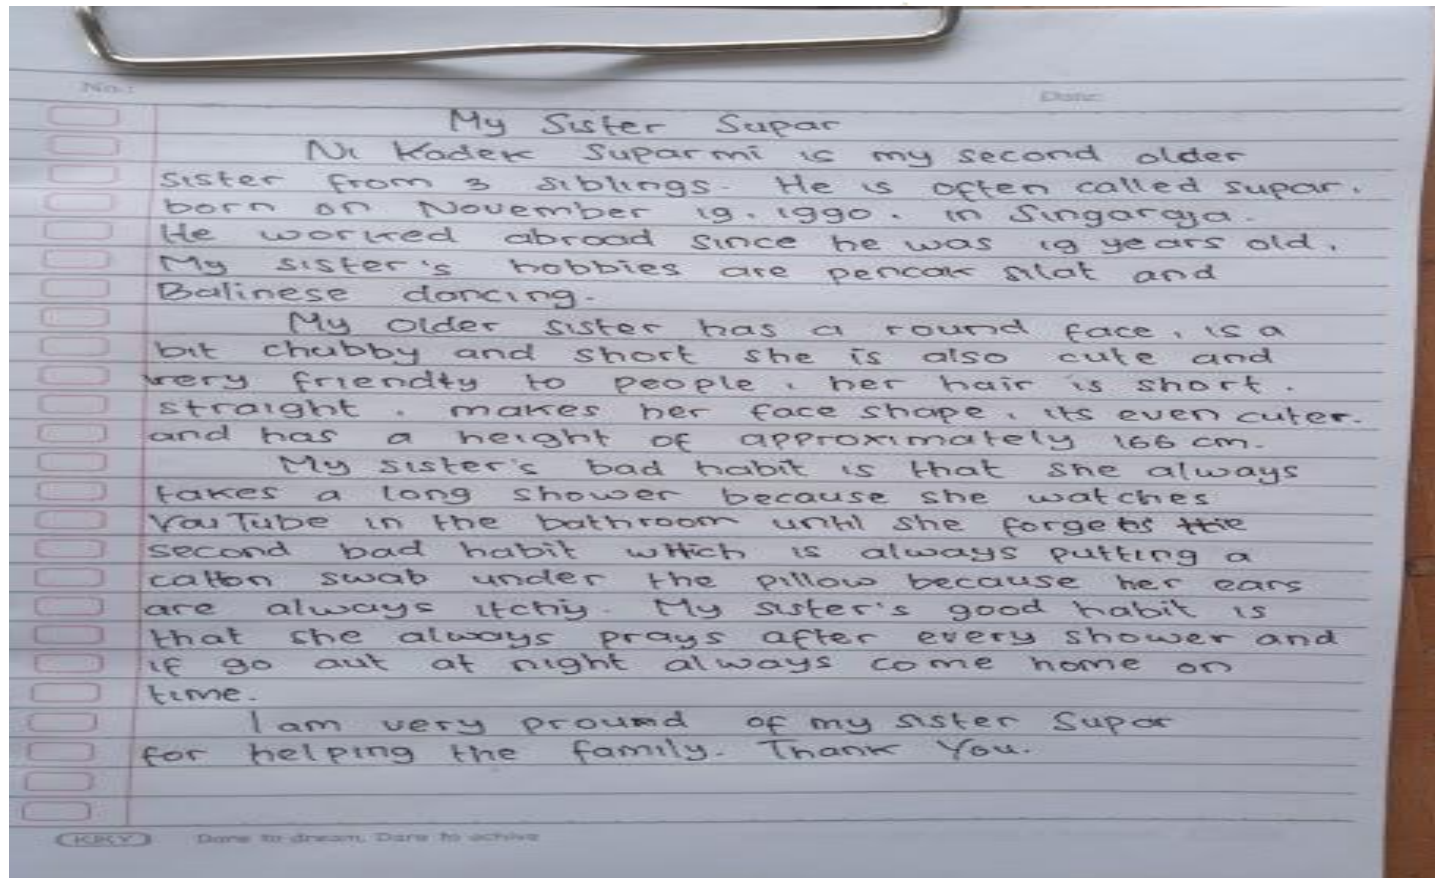 No.:
Date:
My Sister Supar
Ni Kadek Suparmi is my second older
sister from 3 siblings. He is often called supar.
born on November 19. 1990. in Singaraja.
He worked abroad since he was 19 years old.
My sister's hobbies are pencak silat and
Balinese dancing.
My older sister has a round face, is a
bit chubby and short she is also cute and
very friendty to people, her hair is short.
straight. makes her face shape, its even cuter.
and has a height of approximately 166 cm.
My sister's bad habit is that she always
takes a long shower because she watches
YouTube in the bathroom until she forgets the
second bad habit which is always putting a
catton swab under the pillow because her ears
are always itchy. My sister's good habit is
that she always prays after every shower and
if go out at night always come home on
time.
I am very pround of my sister Supar
for helping the family. Thank You.
KIKY Dare to dream, Dare to achive